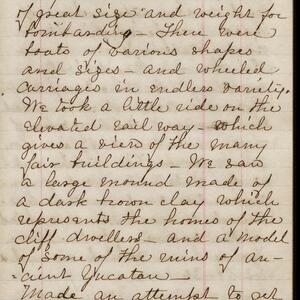 of great size and weight for
bombarding - There were
boats of various shapes
and sizes - and wheeled
carriages in endless variety.
We took a little ride on the
elevated rail way - which
gives a view of the many
fair buildings - We saw
a large mound made of
a dark brown clay which
represents the homes of the
cliff dwellers - and a model
of some of the ruins of an-
cient Yucatan -
Made an attempt to get